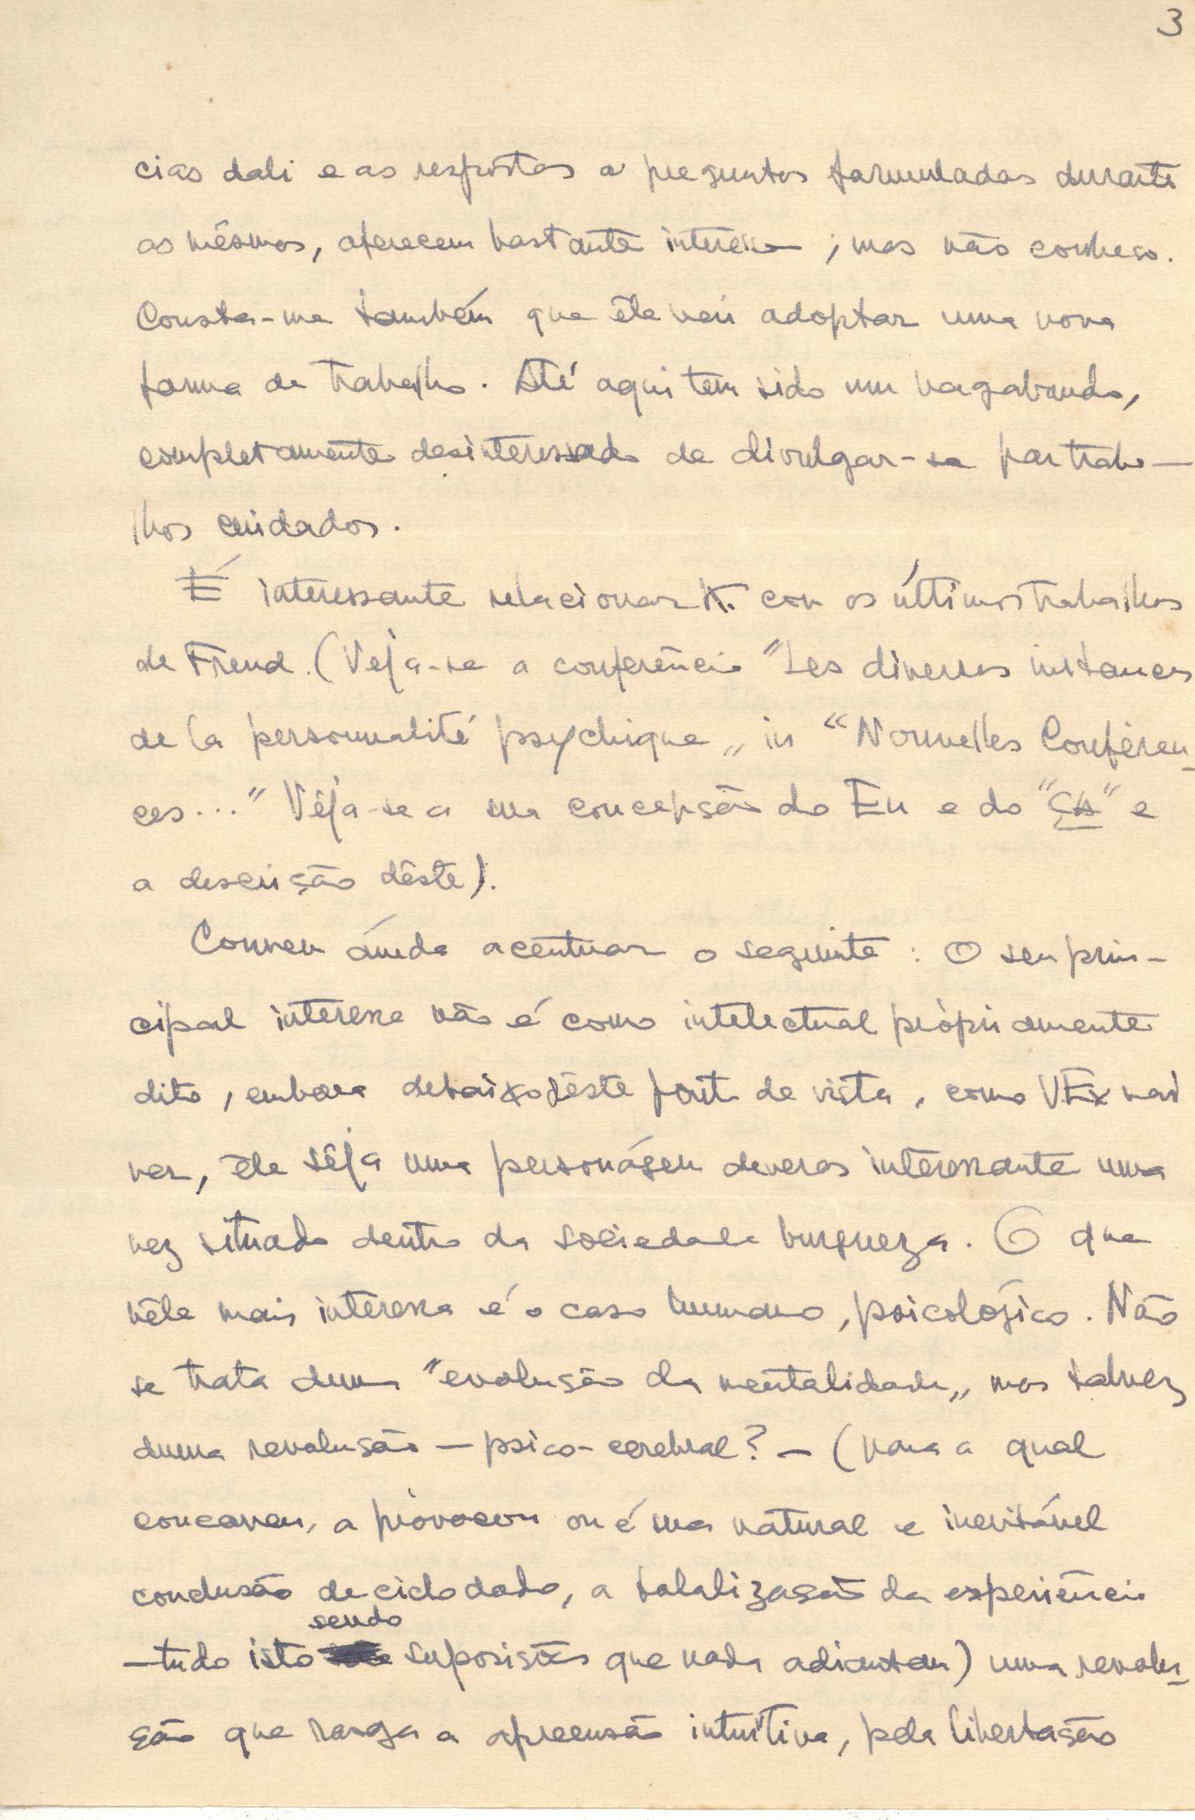 3
cias dali e as respostas a preguntas formuladas durante
as mêsmas, oferecem bastante interesse ; mas não conheço.
Consta-me também que êle vai adoptar uma nova
forma de trabalho. Até aqui tem sido um vagabundo,
completamente desinteressado de divulgar-se por traba-
lhos cuidados.
É interessante relacionar K. com os últimos trabalhos
de Freud. (Veja-se a conferência "Les diverses instances
de la personnalité psychique„ in "Nouvelles Conféren-
ces..." Vêja-se a sua concepção do Eu e do "ÇA" e
a descrição dêste).
Convem áinda acentuar o seguinte : O seu prin-
cipal interesse não é como intelectual pròpriamente
dito, embora debaixo dêste ponto de vista, como VEx vai
ver, êle sêja uma personágem deveras interessante uma
vez situado dentro da sociedade burgueza. O que
nêle mais interessa é o caso humano, psicológico. Não
se trata duma "evolução da mentalidade„ mas talvez
duma revolução — psico-cerebral? — (para a qual
concorreu, a provocou ou é sua natural e inevitável
conclusão de ciclo dado, a totalização da experiência
— tudo isto sendo suposições que nada adiantam) uma revolu-
ção que rasga a apreensão intuitiva, pela libertação